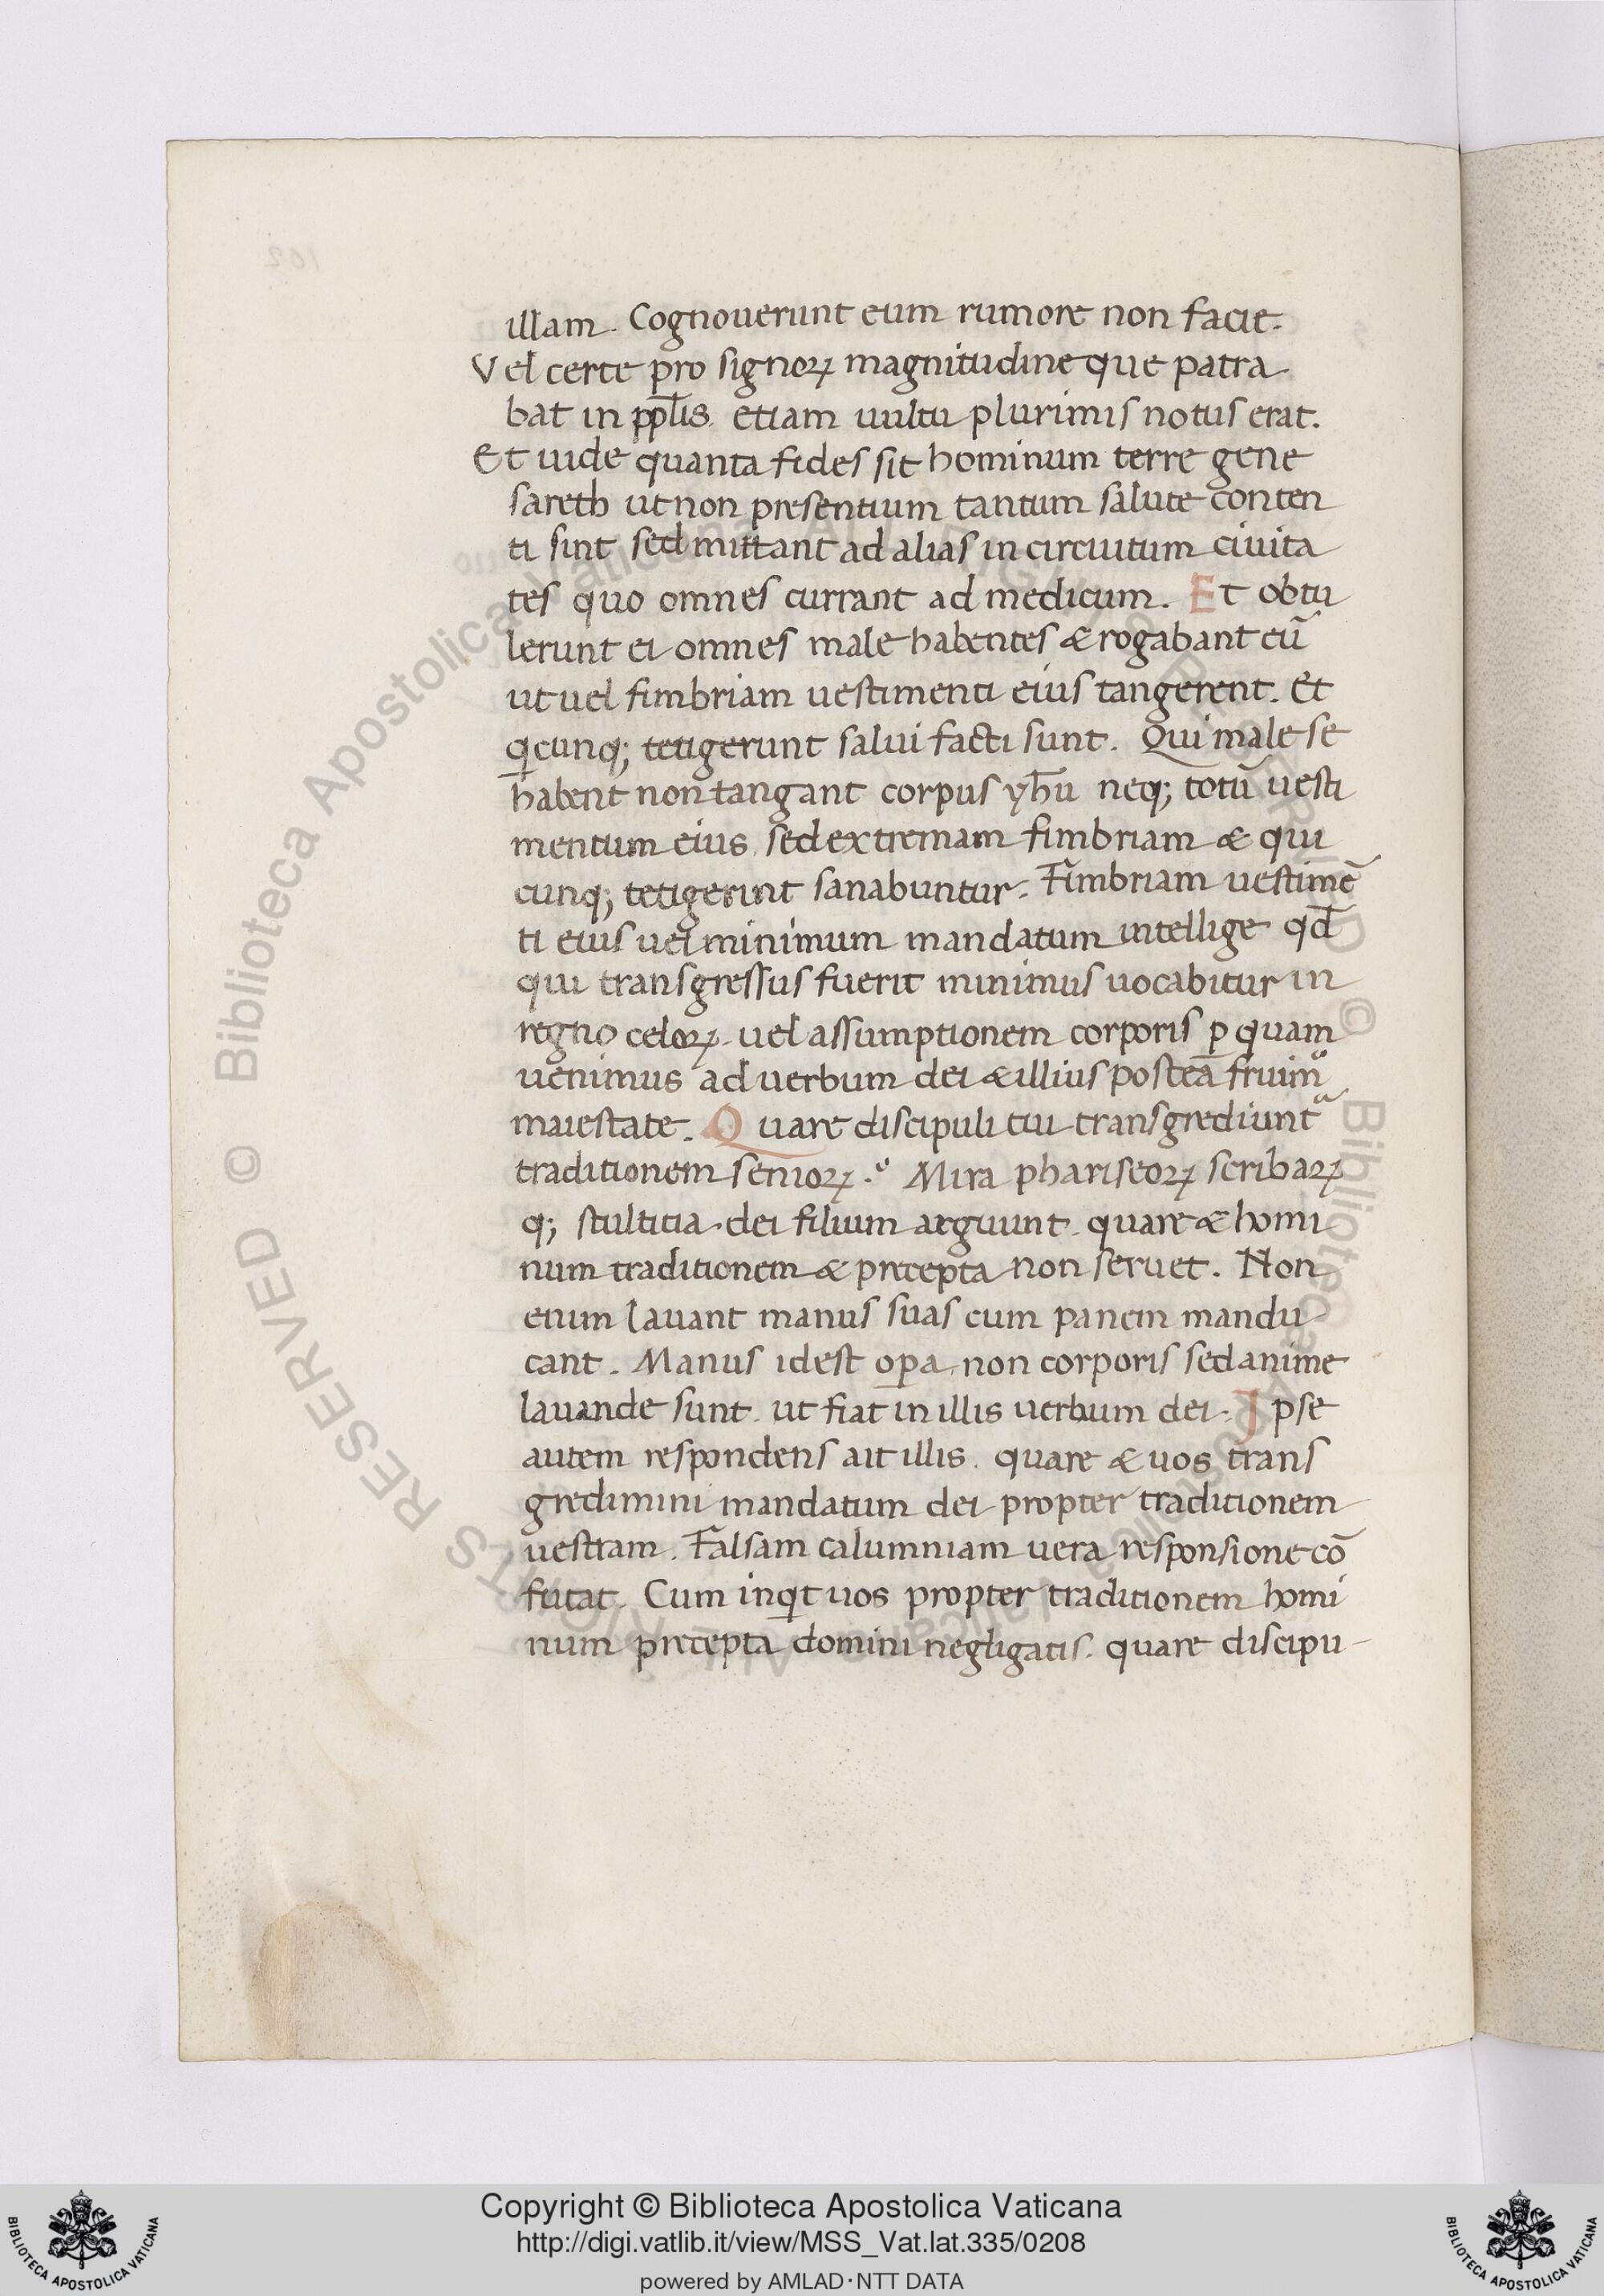 illam. Cognouerunt eum rumore non facie.
Vel certe pro signoꝝ magnitudine que patra
bat in pplis etiam uultu plurimis notus erat.
Et uide quanta fides sit hominum terre gene
sareth ut non presentium tantum salute conten
ti sint sed mittant ad alias in circuitum ciuita
tes quo omnes currant ad medicum. Et obtu
lerunt ei omnes male habentes & rogabant eū
ut uel fimbriam uestimenti eius tangerent. Et
qicunq; tetigerunt salui facti sunt. Qui male se
habent non tangant corpus yhū neq; totū uesti
mentum eius sed extremam fimbriam & qui
cunq; tetigerint sanabuntur. Fimbriam uestimē
ti eius uel minimum mandatum intellige qd̄
qui transgressus fuerit minimus uocabitur in
regno celoꝝ. uel assumptionem corporis ꝑ quam
uenimus ad uerbum dei & illius postea fruim᷑
maiestate. Quare discipuli tui transgrediunt᷑
traditionem senioꝝ.° Mira phariseoꝝ scribaꝝ
q; stultitia. dei filium arguunt. quare & homi
num traditionem & precepta non seruet. Non
enim lauant manus suas cum panem mandu
cant. Manus idest oꝑa non corporis sed anime
lauande sunt. ut fiat in illis uerbum dei. Ipse
autem respondens ait illis. quare & uos trans
gredimini mandatum dei propter traditionem
uestram. Falsam calumniam uera responsione cō
futat. Cum inqit uos propter traditionem homi
num precepta domini negligatis. quare discipu
Copyright © Biblioteca Apostolica Vaticana
http://digi.vatlib.it/view/MSS_Vat.lat.335/0208
powered by AMLAD·NTT DATA
BIBLIOTECA APOSTOLICA VATICANA
BIBLIOTECA APOSTOLICA VATICANA